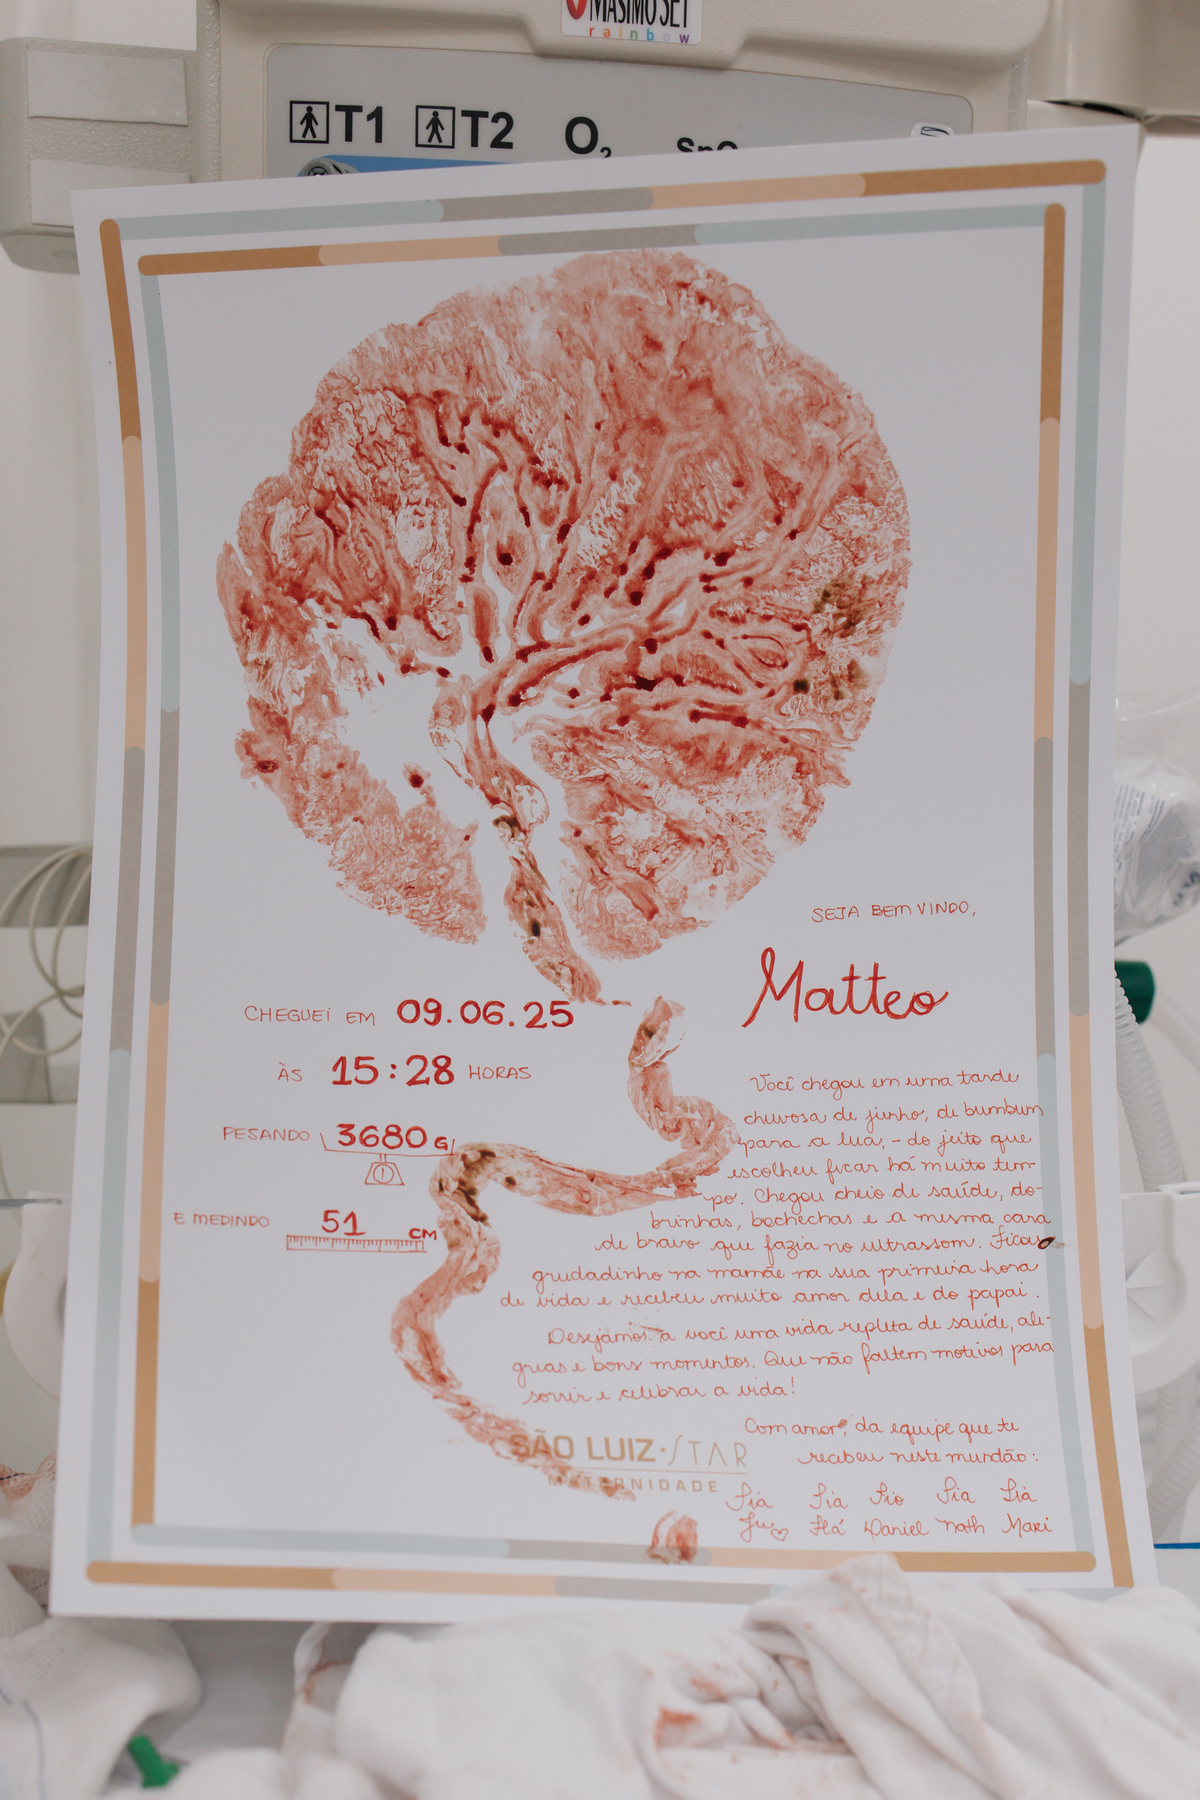 MASIMO SET
rainbow
T1 T2 O2 SpO
SEJA BEM VINDO,
Matteo
CHEGUEI EM 09.06.25
ÀS 15:28 HORAS
PESANDO 3680 G
E MEDINDO 51 CM
Você chegou em uma tarde
chuvosa de junho, de bumbum
para a lua, - do jeito que
escolheu ficar há muito tem-
po. Chegou cheio de saúde, do-
brinhas, bochechas e a mesma cara
de bravo que fazia no ultrassom. Ficou
grudadinho na mamãe na sua primeira hora
de vida e recebeu muito amor dela e do papai.
Desejamos a você uma vida repleta de saúde, ale-
grias e bons momentos. Que não faltem motivos para
sorrir e celebrar a vida!
Com amor, da equipe que te
recebeu neste mundão:
Tia Tia Tio Tia Tia
Ju Flá Daniel Nath Mari
SÃO LUIZ · STAR
MATERNIDADE